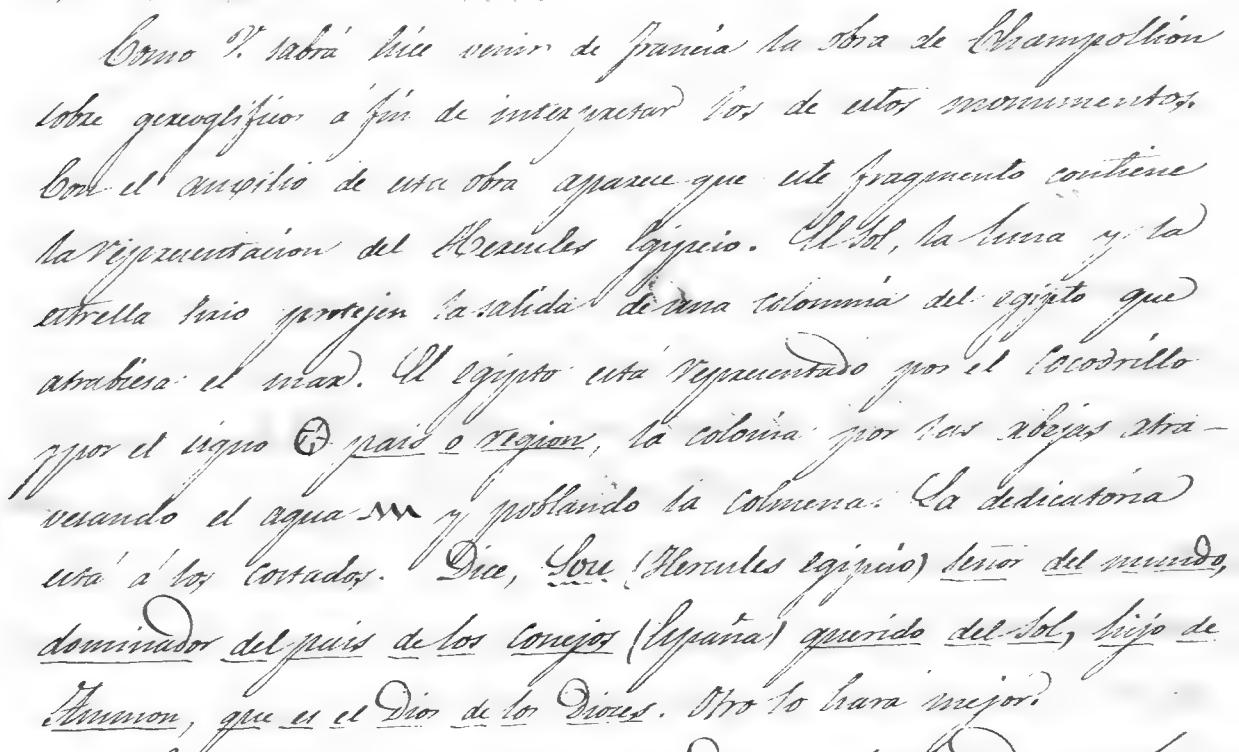 Como V. sabrá hice venir de francia la obra de Champollion
sobre gereoglificos á fin de interpretar los de estos monumentos.
Con el aucsilio de esta obra aparece que este fragmento contiene
la representacion del Hercules Egipcio. El Sol, la luna y la
estrella sirio protejen la salida de una colonia del egipto que
atrabiesa el mar. El egipto está representado por el cocodrillo
y por el signo pais o region, la colonia por las abejas atra-
vesando el agua y poblando la colmena. La dedicatoria
está á los costados. Dice, (Hercules egipcio) señor del mundo,
dominador del pais de los conejos (España) querido del Sol, hijo de
Ammon, que es el Dios de los Dioses. Otro lo hara mejor.